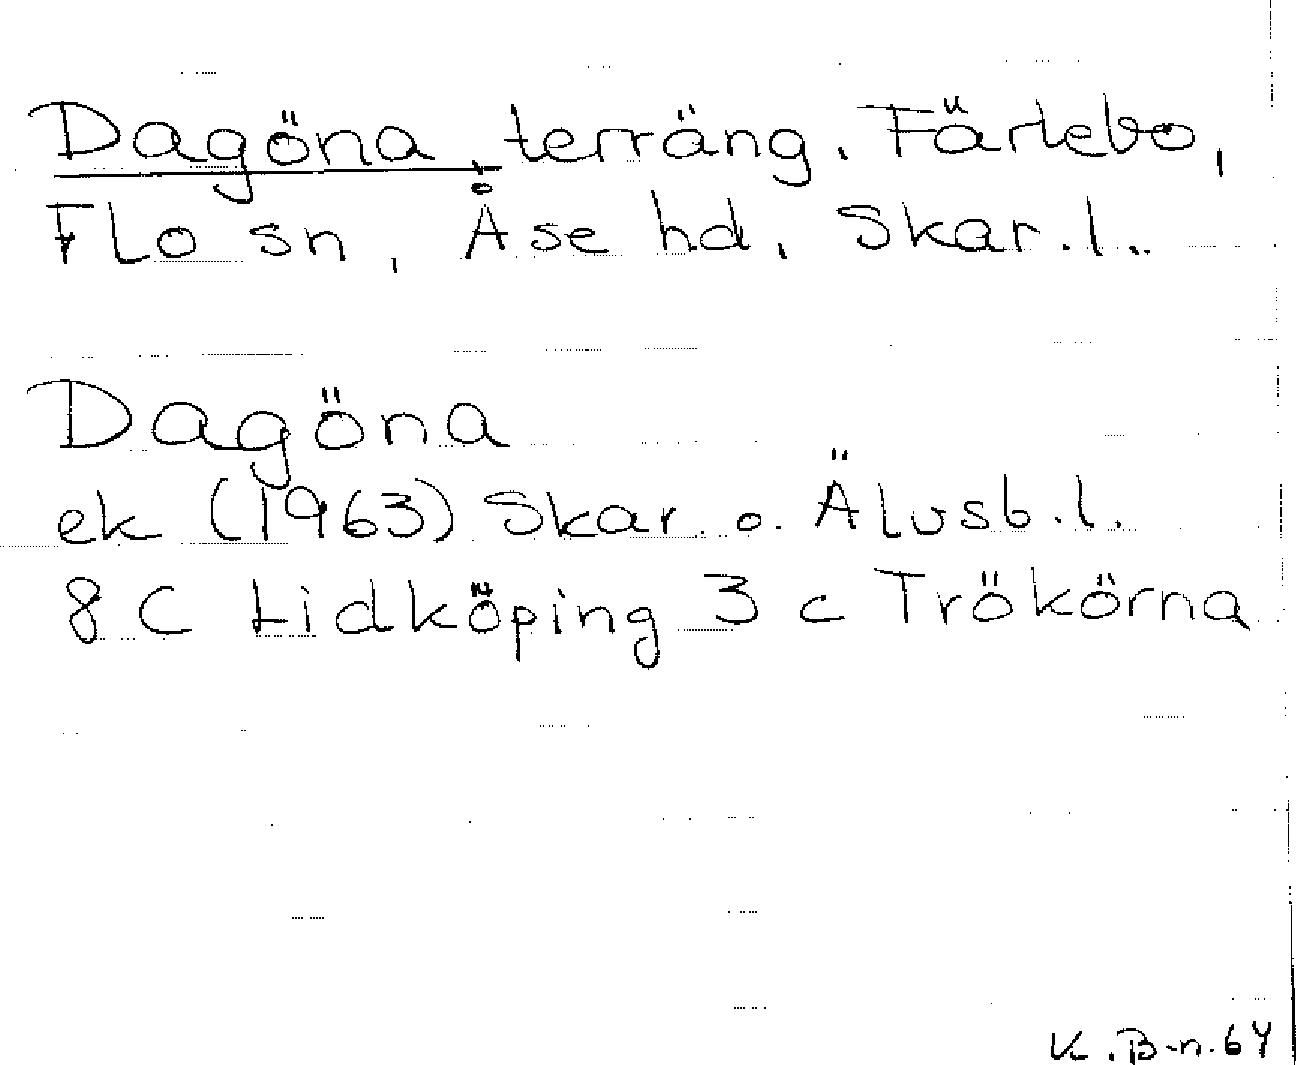 Dagöna, terräng. Färlebo,
Flo sn, Åse hd, Skar. l..
Dagöna
ek (1963) Skar. o. Älvsb. l.
8 C Lidköping 3 c Trökörna
K. B-n. 64